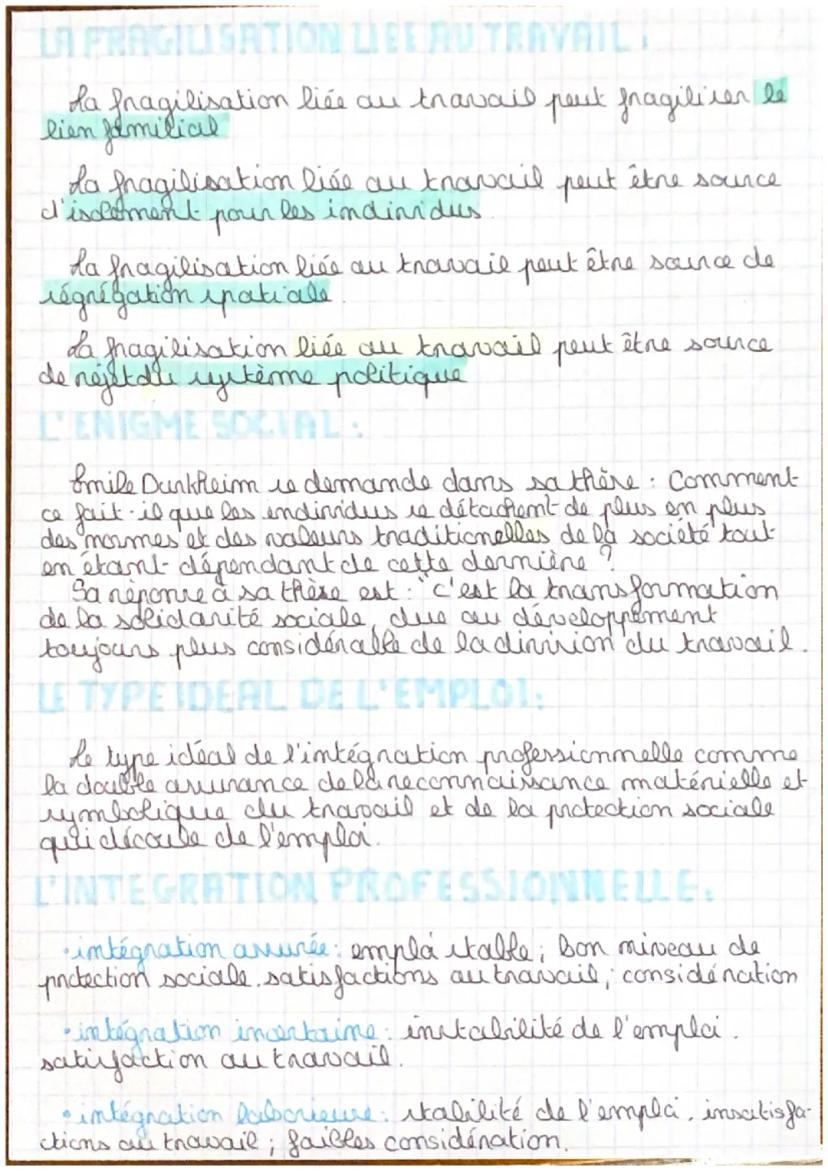 LA FRAGILISATION LIEE AU TRAVAIL :
La fragilisation liée au travail peut fragiliser le
lien familial
La fragilisation liée au travail peut être source
d'isolement pour les individus
La fragilisation liée au travail peut être source de
ségrégation spatiale.
La fragilisation liée au travail peut être source
de rejet du système politique
L'ENIGME SOCIAL :
Emile Durkheim se demande dans sa thèse : Comment
ce fait-il que les individus se détachent de plus en plus
des normes et des valeurs traditionelles de la société tout
en étant dépendant de cette dernière ?
Sa réponse à sa thèse est : "c'est la transformation
de la solidarité sociale, due au développement
toujours plus considérable de la division du travail.
LE TYPE IDEAL DE L'EMPLOI :
Le type idéal de l'intégration professionnelle comme
la double assurance de la reconnaissance matérielle et
symbolique du travail et de la protection sociale
qui découle de l'emploi.
L'INTEGRATION PROFESSIONNELLE :
• intégration assurée : emploi stable ; bon niveau de
protection sociale. satisfactions au travail ; considération
• intégration incertaine : instabilité de l'emploi.
satisfaction au travail.
• intégration laborieuse : stabilité de l'emploi. insatisfa-
ctions au travail ; faibles considération.